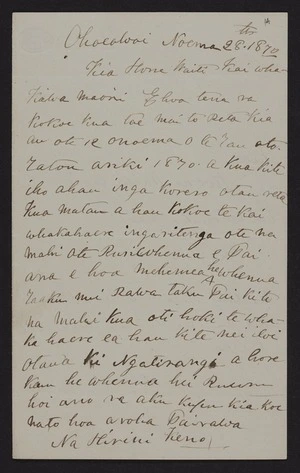 Noema 28th 1870
Kia Hone Waiti Kai wha-
kawa maori E hoa tena ra
Kokoe kua tae mai to reta kia
au ote 12 onoema o te Tau oto
Tatou ariki 1870. a kua kite
iho ahau inga korero otau reta
Kua matau a hau kokoe te kai
whakahaere ingaritenga ote na
mahi ote Ruri Whenua e Pai
ana e hoa mehemea he whenua
Taaku nui rawa taku Pai kite
na mahi kua oti hoki te wha-
ka haere ea hau kite nei iwi
Otaua ki Ngatirangi a hore
kau he whenua hei Ruri
hoi ano ra aku kupu kia koe
nato hoa aroha Pairawa
Na Hirini